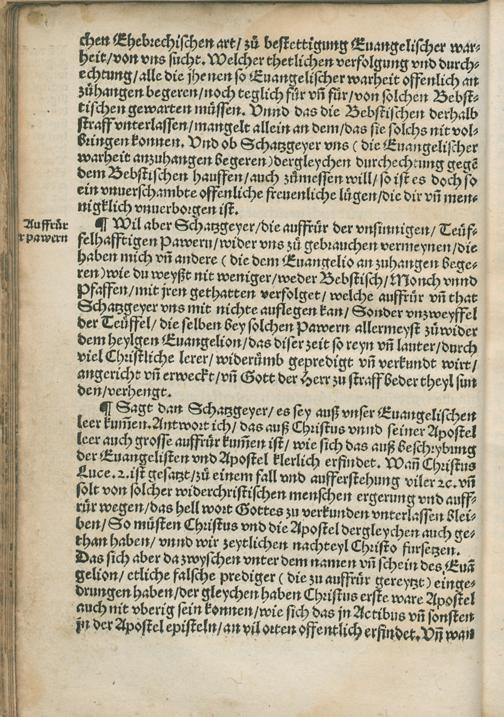 chen Ehebrechischen art/ zů bestettigung Euangelischer war-
heit/von vns sücht. Welcher thetlichen verfolgung vnd durch-
echtung/alle die jhenen so Euangelischer warheit offenlich an
zůhangen begeren/noch teglich für vñ für/von solchen Bebst-
tischen gewarten müssen. Vnnd das die Bebstischen derhalb
straff vnterlassen/mangelt allein an dem/das sie solchs nit vol-
bringen konnen. Vnd ob Schatzgeyer vns ( die Euangelischer
warheit anzuhangen begeren ) dergleychen durchechtung gegē
dem Bebstischen hauffen/auch zůmessen will/so ist es doch so
ein vnuerschambte offenliche freuenliche lügen/die dir vñ men-
nigklich vnuerborgen ist.
Auffrůr
pawern
¶ Wil aber Schatzgeyer/die auffrür der vnsinnigen/ Teüf-
felhafftigen Pawern/wider vns zů gebrauchen vermeynen/die
haben mich vñ andere ( die dem Euangelio an zuhangen bege-
ren ) wie du weyßt nit weniger/weder Bebstisch/Monch vnnd
Pfaffen/mit jren gethatten verfolget/welche auffrür vñ that
Schatzgeyer vns mit nichte auflegen kan/ Sonder vnzweyffel
der Teüffel/die selben bey solchen Pawern allermeyst zůwider
dem heylgen Euangelion/das diser zeit so reyn vñ lauter/durch
viel Christliche lerer/ widerümb gepredigt vñ verkundt wirt/
angericht vñ erweckt/vñ Gott der Herr zu straff beder theyl sün
den/verhengt.
¶ Sagt dan Schatzgeyer/es sey auß vnser Euangelischen
leer kum̃en. Antwort ich/das auß Christus vnnd seiner Apostel
leer auch grosse auffrür kum̃en ist/ wie sich das auß beschrybung
der Euangelisten vnd Apostel klerlich erfindet. Wañ Christus
Luce. 2. ist gesatzt/zů einem fall vnd aufferstehung viler ꝛc. vñ
solt von solcher widerchristischen menschen ergerung vnd auff-
rür wegen/das hell wort Gottes zu verkunden vnterlassen blei-
ben/So müsten Christus vnd die Apostel dergleychen auch ge-
than haben/ vnnd wir zeytlichen nachteyl Christo fursetzen.
Das sich aber da zwyschen vnter dem namen vñ schein des Euā
gelion/ etliche falsche prediger ( die zu auffrür gereytzt ) einge-
drungen haben/der gleychen haben Christus erste ware Apostel
auch nit vberig sein konnen/wie sich das jn Actibus vñ sonsten
jn der Apostel episteln/an vil orten offentlich erfindet. Vñ wan